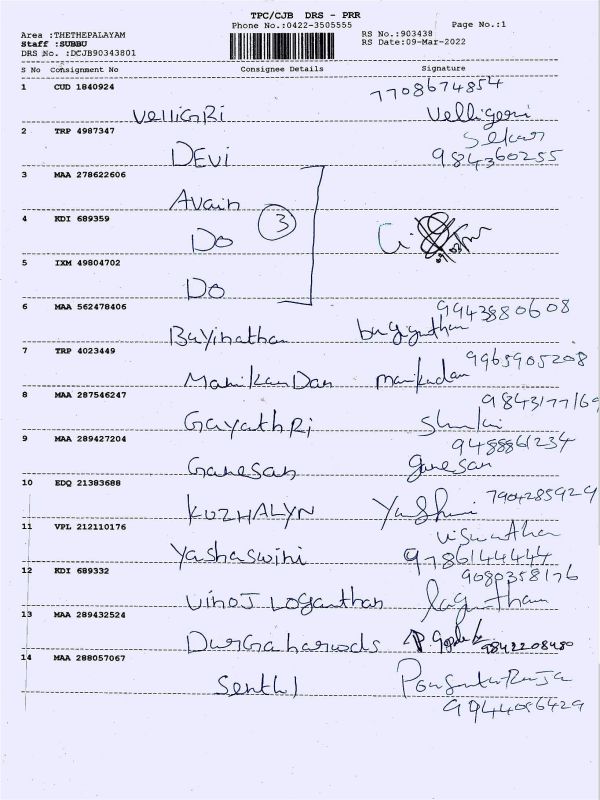 TPC/CJB DRS - PRR
Phone No.:0422-3505555 Page No.:1
Area :THETHEPALAYAM RS No.:903438
Staff :SUBBU RS Date:09-Mar-2022
DRS No. :DCJB90343801
S No Consignment No Consignee Details Signature
1 CUD 1840924 7708674854
VelliGiRi Velligeri
2 TRP 4987347 Sekar
DEVI 984360255
3 MAA 278622606
Avain
4 KDI 689359
Do 3
5 IXM 49804702
Do
6 MAA 562478406 9943880608
Bayinathan
7 TRP 4023449 9965905208
ManikanDan manikadan
8 MAA 287546247 984317716
GayathRi
9 MAA 289427204 9488861234
Ganesan ganesan
10 EDQ 21383688 7904285929
KUZHALYN
11 VPL 212110176
Yashaswini 9786144444
12 KDI 689332 9080358176
Vinoj Loganthan
13 MAA 289432524
Durga harwods 9842208480
14 MAA 288057067
Senthl
9944056429